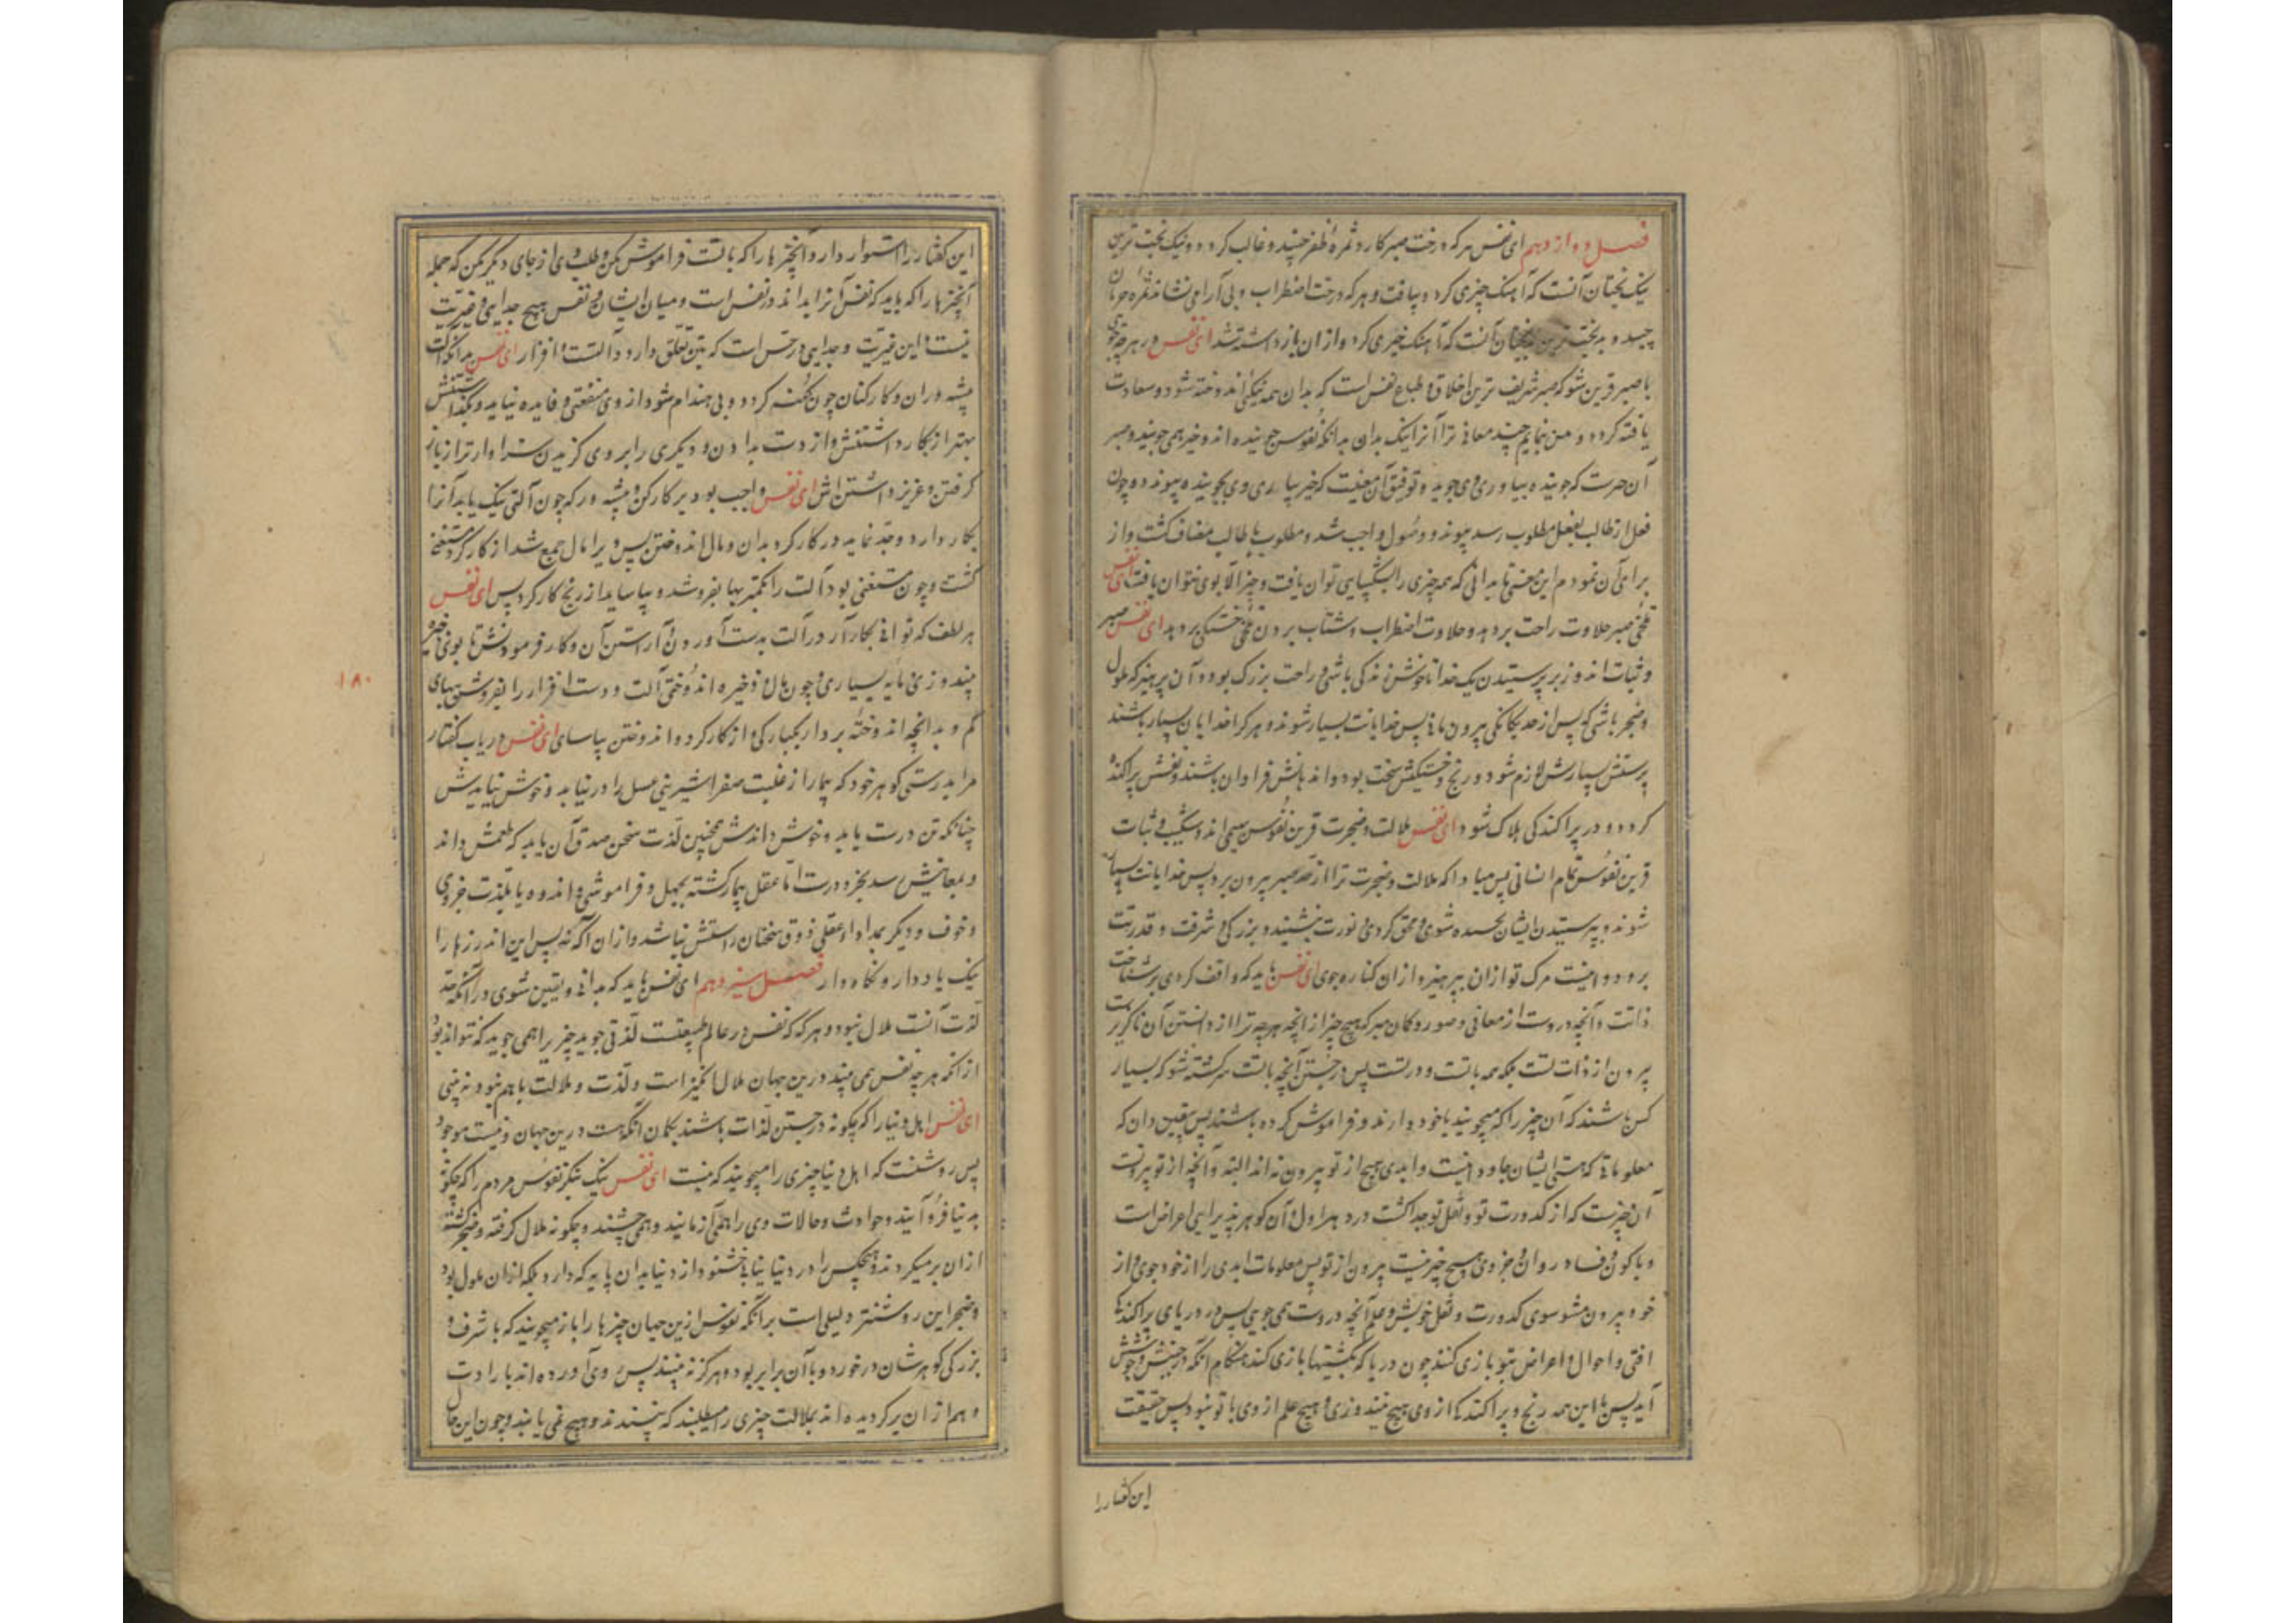 فصل دوازدهم ای نفس هر که درخت صبر کارد ثمرهٔ ظفر چیند و غالب کردد و نیک بخت ترین
نیک بختان آنست که آهنک چیزی کرد و بیافت و هر که درخت اضطراب و بی آرامی نشاند ثمره حرمان
چیند و بدبخت ترین بدبختان آنست که آهنک چیزی کرد و ازان بازداشته شد ای نفس در هرچه
با صبر قرین شو که صبر شریف ترین اخلاق و طباع نفس است که بدان همه نیکی اندوخته شود و سعادت
یافته کردد و من بنمایم چند معانی ترا آنرا نیک بدان بدانکه نفوس جوینده اند و خیر همی جویند و صبر
آن حرست که جوینده بیاوری وی جوید و توفیق آن معنیست که خیر بیاری وی بجوینده پیوندد و چون
فعل از طالب بفعل مطلوب رسد پیوند و وصول واجب شد و مطلوب با طالب مضاف کشت و از
برای آن نمودم این معنی تا بدانی که همه چیزی را بشکیبایی توان یافت و جز الا بوی نتوان یافت ای نفس
تلخی صبر حلاوت راحت بر دهد و حلاوت اضطراب و شتاب بر دن تلخی خستکی بر دهد ای نفس صبر
و ثبات اندوز بر پرستیدن یک خدا تا خوش زندکی باشی و راحت بزرک بود و آن پرهیز که ملول
و ضجر باشی که پس از حد یکانکی بیرون مانی پس خدایانت بسیار شوند و هر کرا خدایان بسیار باشند
پرستش بسیارش لازم شود و رنج و خستکیش سخت بود و اندهانش فراوان باشند و نفسش پراکنده
کردد و در پراکندکی هلاک شود ای نفس ملالت و ضجرت قرین نفوس بهیمی اند و شکیب و ثبات
قرین نفوس تمام انسانی پس مبادا که ملالت و ضجرت ترا از حد صبر بیرون برد پس خدایانت بسیار
شوند و پرستیدن ایشان بحسده شوی و محق کردی نورت بنشیند و بزرکی و شرفت و قدرتت
برود و اینست مرک تو ازان بپرهیز و ازان کناره جوی ای نفس باید که واقف کردی بر شناخت
ذاتت و آنچه دروست از معانی و صور و کمان مبر که هیچ چیز از آنچه هرچه ترا از دانستن آن ناکزیرست
بیرون از ذات تست بلکه همه باتست و در تست پس در جستن آنچه باتست سرکشته مشو که بسیار
کس باشند که آن چیز را که میجویند با خود دارند و فراموش کرده باشند پس یقین دان که
معلوماتی که هستی ایشان جاودانیست و ابدی هیچ از تو بیرون نه اند البته و آنچه از تو بیرونست
آن چیزست که از کدورت تو و ثقل تو جدا کشت در دهر اول و آن کوهر پذیرایی اعراض است
و با کون و فساد روان و جز وی هیچ چیز نیست بیرون از تو پس معلومات ابدی را از خود جوی و از
خود بیرون مشو سوی کدورت و ثقل خویش و علم آنچه دروست همی جویی پس در دریای پراکندکی
افتی و احوال و اعراض بتو بازی کنند چون دریا که بکشتیها بازی کند هنکام آنکه در جنبش و جوشش
آید پس با این همه رنج و پراکندکی از وی هیچ نیندوزی و هیچ علم از وی با تو نبود پس حقیقت
این کفتار را
این کفتار را استوار دار و آنچیزها را که باتست فراموش مکن و طلب وی از جای دیکر مکن که جمله
آنچیزها را که باید که نفس آنرا بداند در نفس است و میان ایشان و نفس هیچ جدایی و غیریت
نیست و این غیریت و جدایی در حس است که بتن تعلق دارد و آلتست و افزار ای نفس بدانکه آلت
پیشه وران و کارکنان چون کهنه کردد و بی هندام شود از وی منفعتی و فایده نیاید و بکذاشتنش
بهتر از بکار داشتنش و از دست بدادن و دیکری را بر وی کزیدن سزاوارتر از باز
کرفتن و عزیز داشتن اش ای نفس واجب بود بر کارکن و پیشه ور که چون آلتی نیک یابد آنرا
بکار دارد و جد نماید در کارکرد بدان و مال اندوختن پس ویرا مال جمع شد از کارکرد مستغنی
کشت و چون مستغنی بود آلت را بکمتر بها بفروشد و بیاساید از رنج کارکرد پس ای نفس
هر لطف که توانی بکار آر در آلت بدست آوردن و آراستن آن و کار فرمودنش تا بوی ذخیره
چند وزی مایه بسیاری و چون مال و ذخیره اندوختی آلت و دست افزار را بفروش ببهای
کم و بدانچه اندوخته بردار یکبارکی از کارکرد و اندوختن بیاسای ای نفس دریاب کفتار
مرا بدرستی کوهر خود که بیمار از غلبت صفرا شیرینی عسل را در نیابد و خوش نیایدش
چنانکه تن درست یابد و خوش داندش همچنین لذت سخن صدق آن یابد که طعمش داند
و بمعانیش رسد بخرد درست اما عقل بیمار کشته بجهل و فراموشی و اندوه یا بلذت جزوی
و خوف و دیکر بمداواد عقلی ذوق سخنان راستش نباشد و ازان آکه نه پس این اندرزها را
نیک یاد دار و نکاه دار فصل سیزدهم ای نفس باید که بدانی و یقین شوی در آنکه حد
لذت آنست ملال نبود و هر که که نفس در عالم طبیعت لذتی جوید چیزیرا همی جوید که نتواند بود
از آنکه هرچه نفس همی بیند درین جهان ملال انکیز است و لذت و ملالت با هم نبود نه بینی
ای نفس اهل دنیا را که چکونه در جستن لذات باشند بکمان آنکه هست درین جهان و نیست موجود
پس روشنست که اهل دنیا چیزی را میجویند که نیست ای نفس نیک بنکر نفوس مردم را که چکونه
بدنیا فرو آیند و حوادث و حالات وی را همی آزمایند و همی چشند و چکونه ملال کرفته و ضجر کشته
ازان برمیکردند و هیچکس را در دنیا نیابی خشنود از دنیا بدان پایه که دارد بلکه ازان ملول بود
و ضجر این روشنتر دلیلی است بر آنکه نفوس ازین جهان چیزها را باز میجویند که با شرف و
بزرکی کوهرشان درخورد و با آن برابر بود و هرکز نه بینند پس روی آورده اند بارادت
و هم ازان برکردیده اند بملالت چیزی را میطلبند که نپسندند و هیچ نمی یابند و چون این حال
۱۸۰